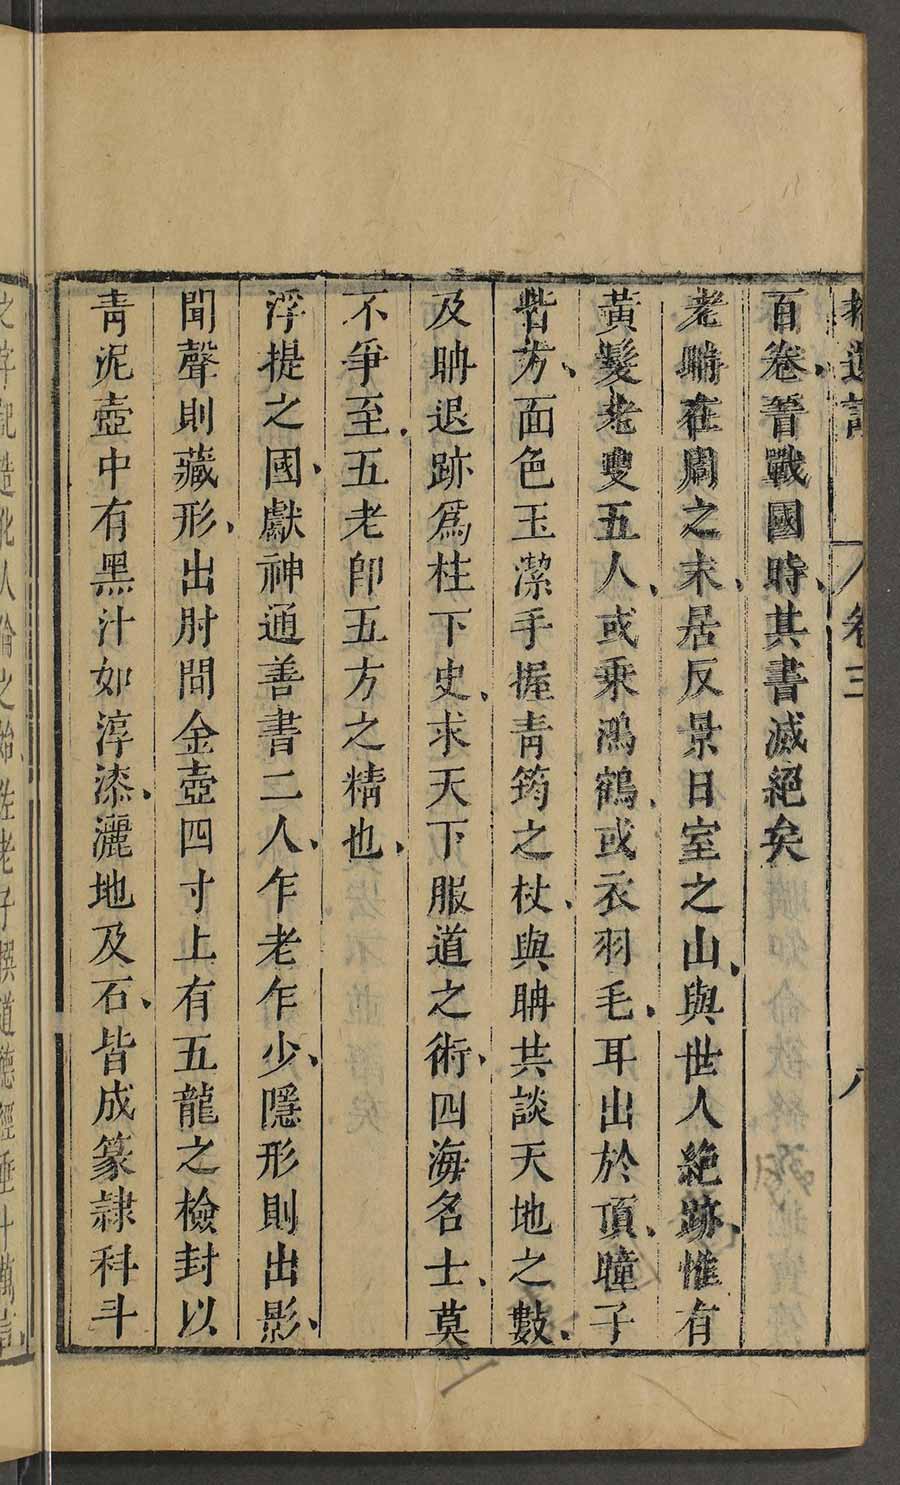 拾遺記 卷三 八
百卷、晉戰國時、其書滅絕矣
老聃在周之末、居反景日室之山、與世人絕跡、惟有
黃髮老叟五人、或乘鴻鶴、或衣羽毛、耳出於頂、瞳子
皆方、面色玉潔手握青筠之杖、與聃共談天地之數、
及聃退跡爲柱下史、求天下服道之術、四海名士、莫
不爭至、五老卽五方之精也、
浮提之國、獻神通善書二人、乍老乍少、隱形則出影、
聞聲則藏形、出肘間金壺四寸上有五龍之檢封以
青泥壺中有黑汁如淳漆、灑地及石、皆成篆隷科斗
之字記造化人倫之始佐老子撰道德經垂十萬言